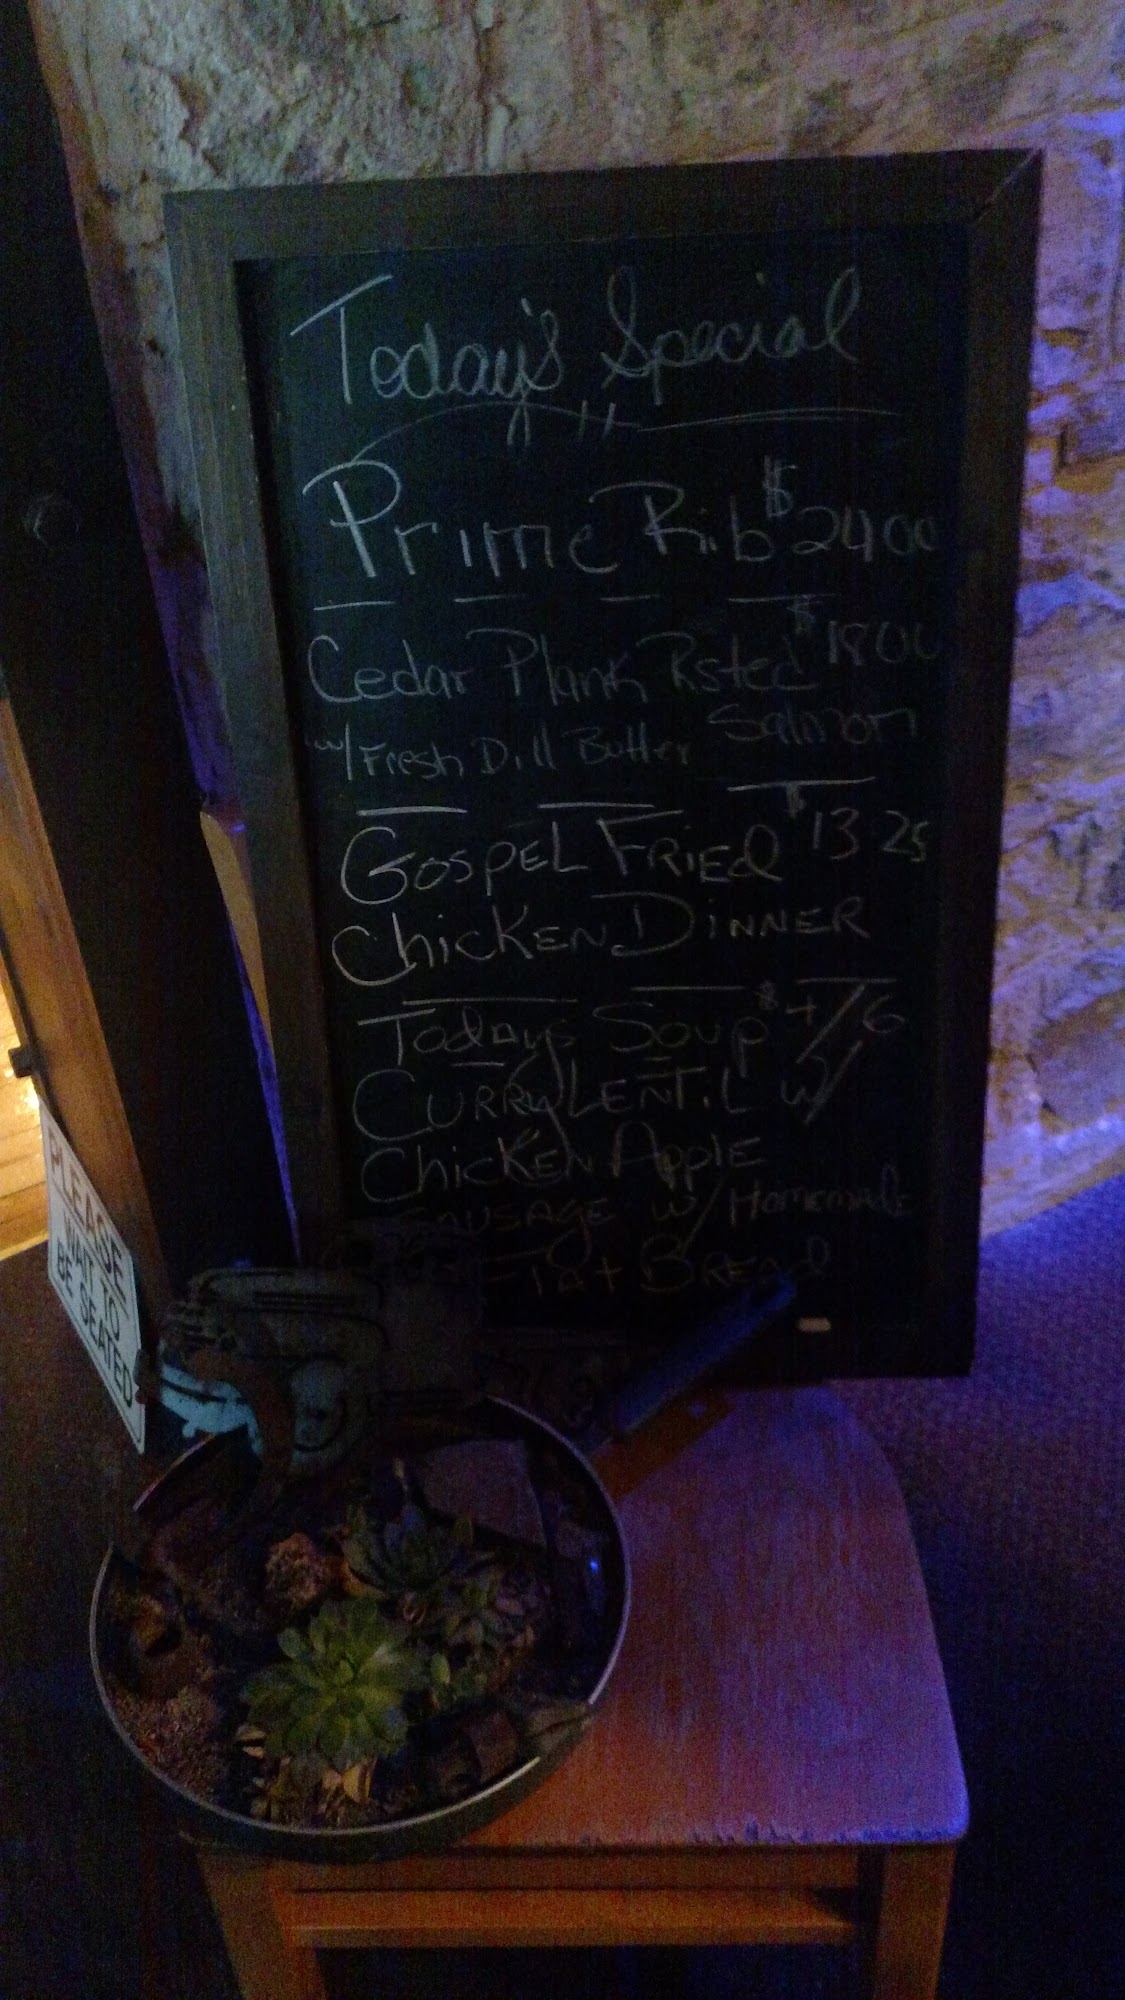 Today's Special
Prime Rib $2400
Cedar Plank Rsted $1800
w/ Fresh Dill Butter Salmon
GOSPEL FRIED $13.25
CHICKEN DINNER
Todays Soup $4/6
CURRY LENTIL w/
CHICKEN APPLE
SAUSAGE w/ HOMEMADE
Flat BREAD
PLEASE
WAIT TO
BE SEATED